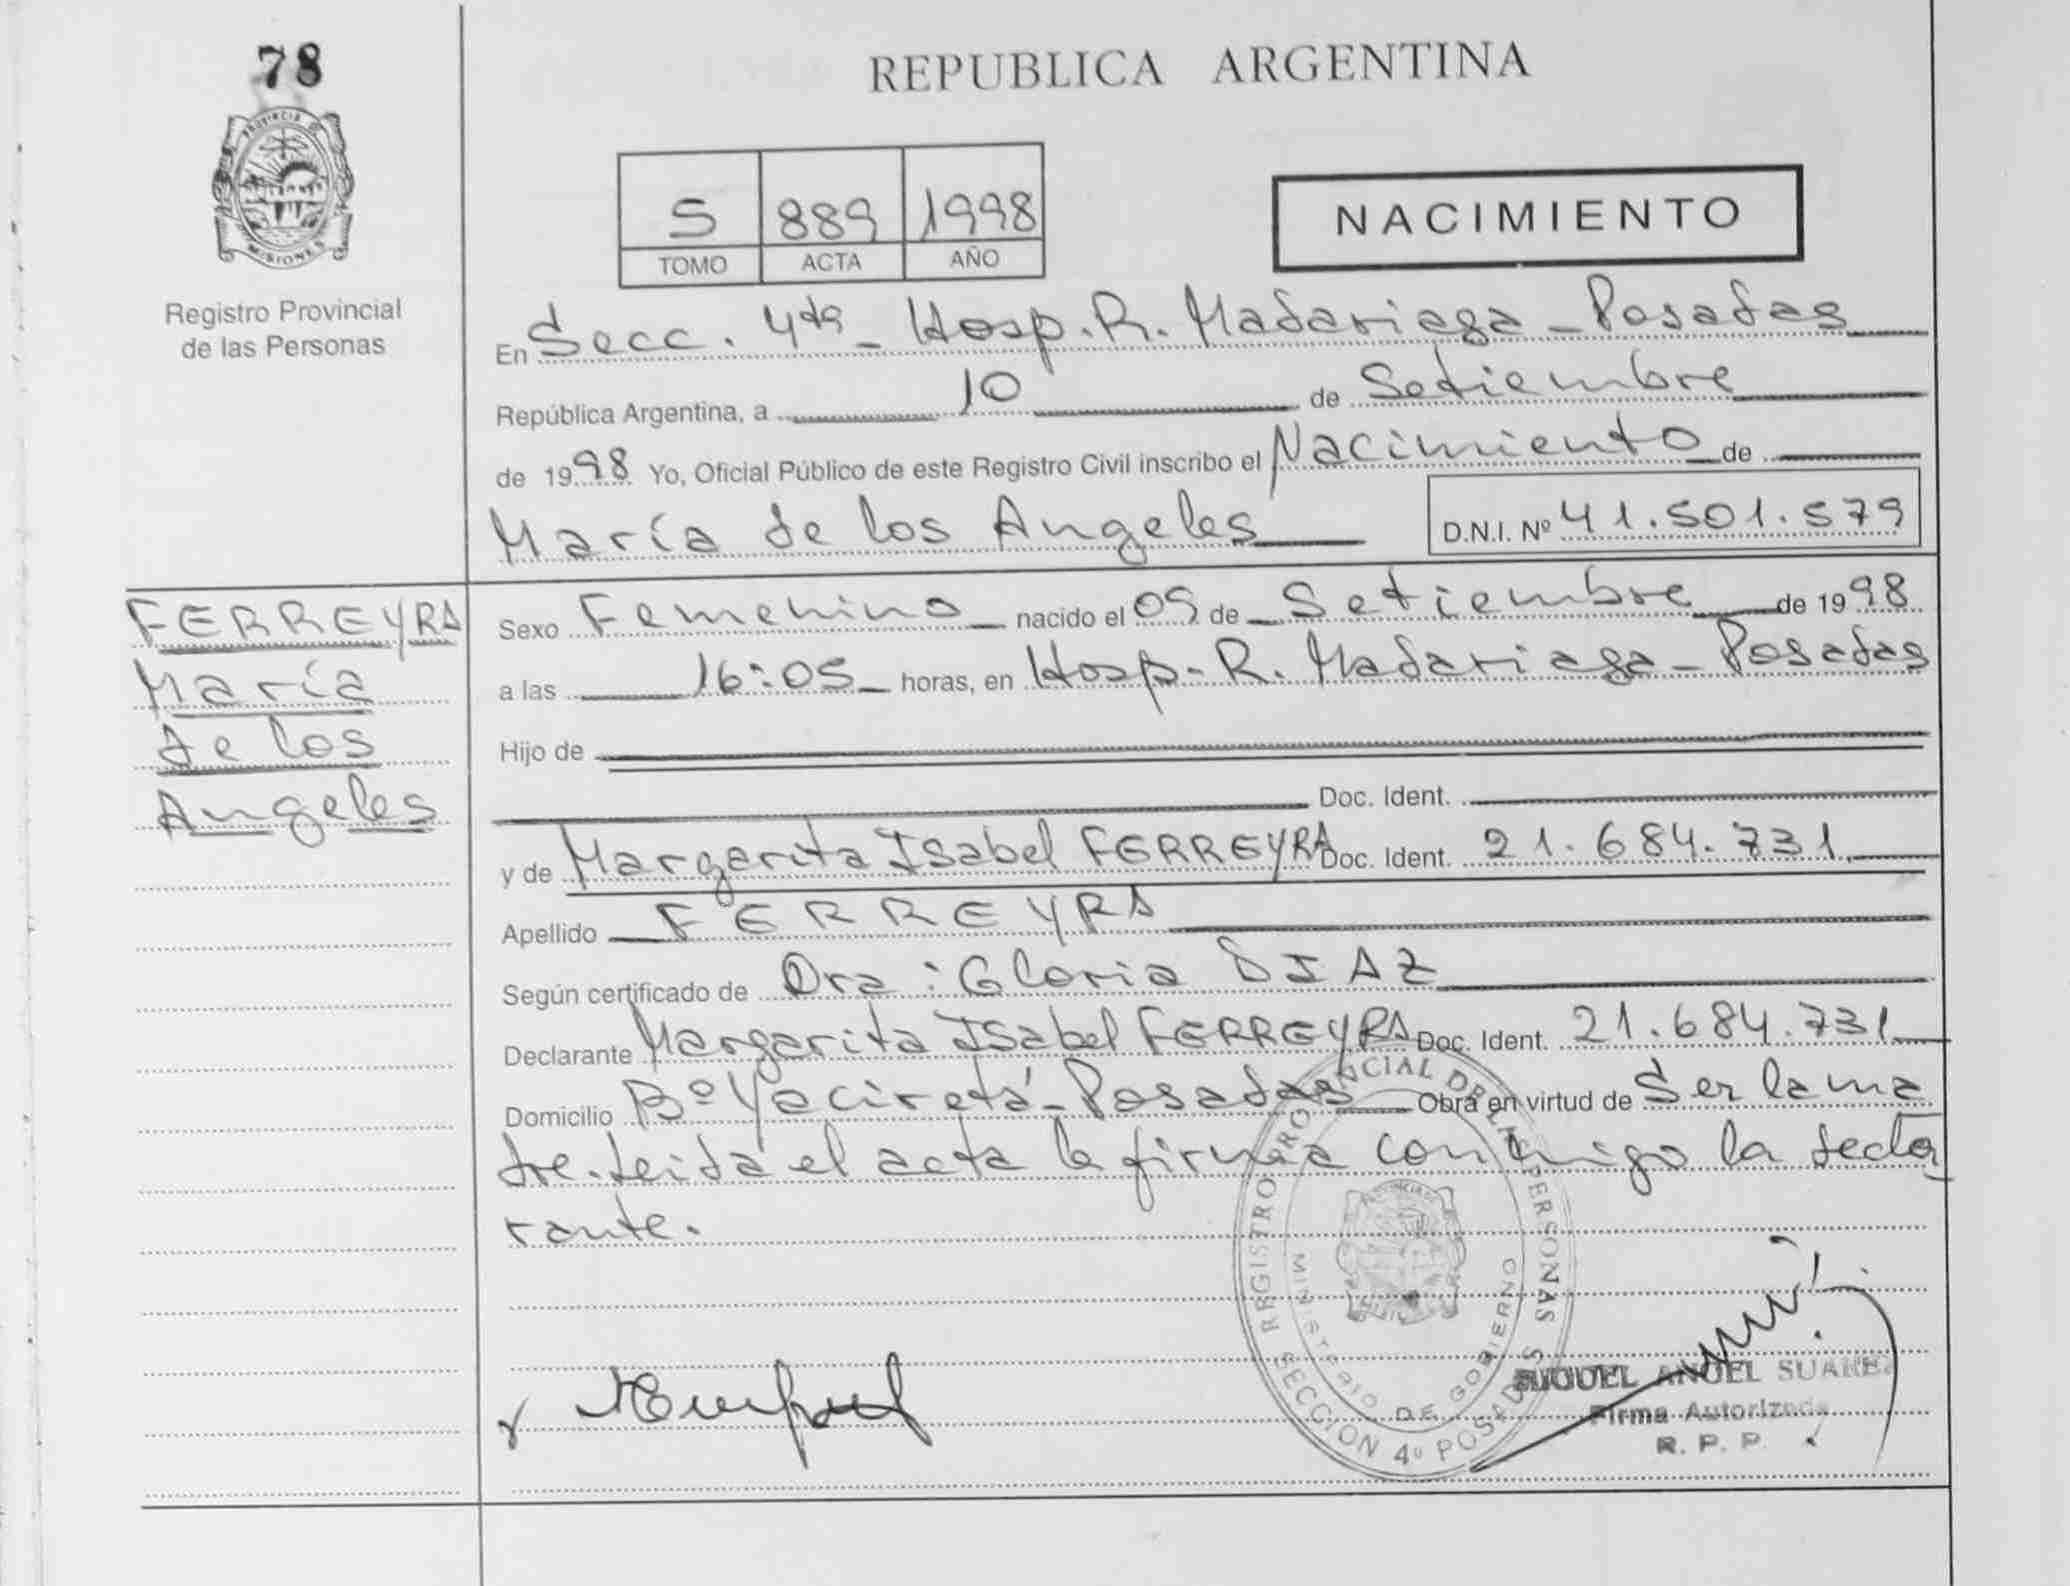 78
REPUBLICA ARGENTINA
PROVINCIA DE
MISIONES
Registro Provincial
de las Personas
S 889 1998
TOMO ACTA AÑO
NACIMIENTO
En Secc. 4ta - Hosp. R. Madariaga - Posadas
República Argentina, a 10 de Setiembre
de 1998 Yo, Oficial Público de este Registro Civil inscribo el Nacimiento de
María de los Angeles D.N.I. Nº 41.501.579
FERREYRA
María
de los
Angeles
Sexo Femenino nacido el 09 de Setiembre de 1998
a las 16:05 horas, en Hosp. R. Madariaga - Posadas
Hijo de
Doc. Ident.
y de Margarita Isabel FERREYRA Doc. Ident. 21.684.731
Apellido FERREYRA
Según certificado de Dra: Gloria DIAZ
Declarante Margarita Isabel FERREYRA Doc. Ident. 21.684.731
Domicilio Bº Yaciretá - Posadas Obra en virtud de Ser la ma
dre. Leida el acta la firma conmigo la decla
rante.
REGISTRO PROVINCIAL DE LAS PERSONAS
MINISTERIO DE GOBIERNO
SECCION 4º POSADAS
MIGUEL ANGEL SUAREZ
Firma Autorizada
R. P. P.